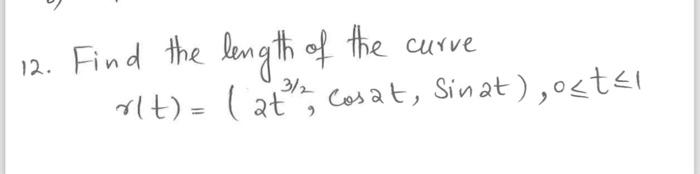 12. Find the length of the curve
r(t) = ( 2t^{3/2}, Cos 2t, Sin 2t ), 0 ≤ t ≤ 1